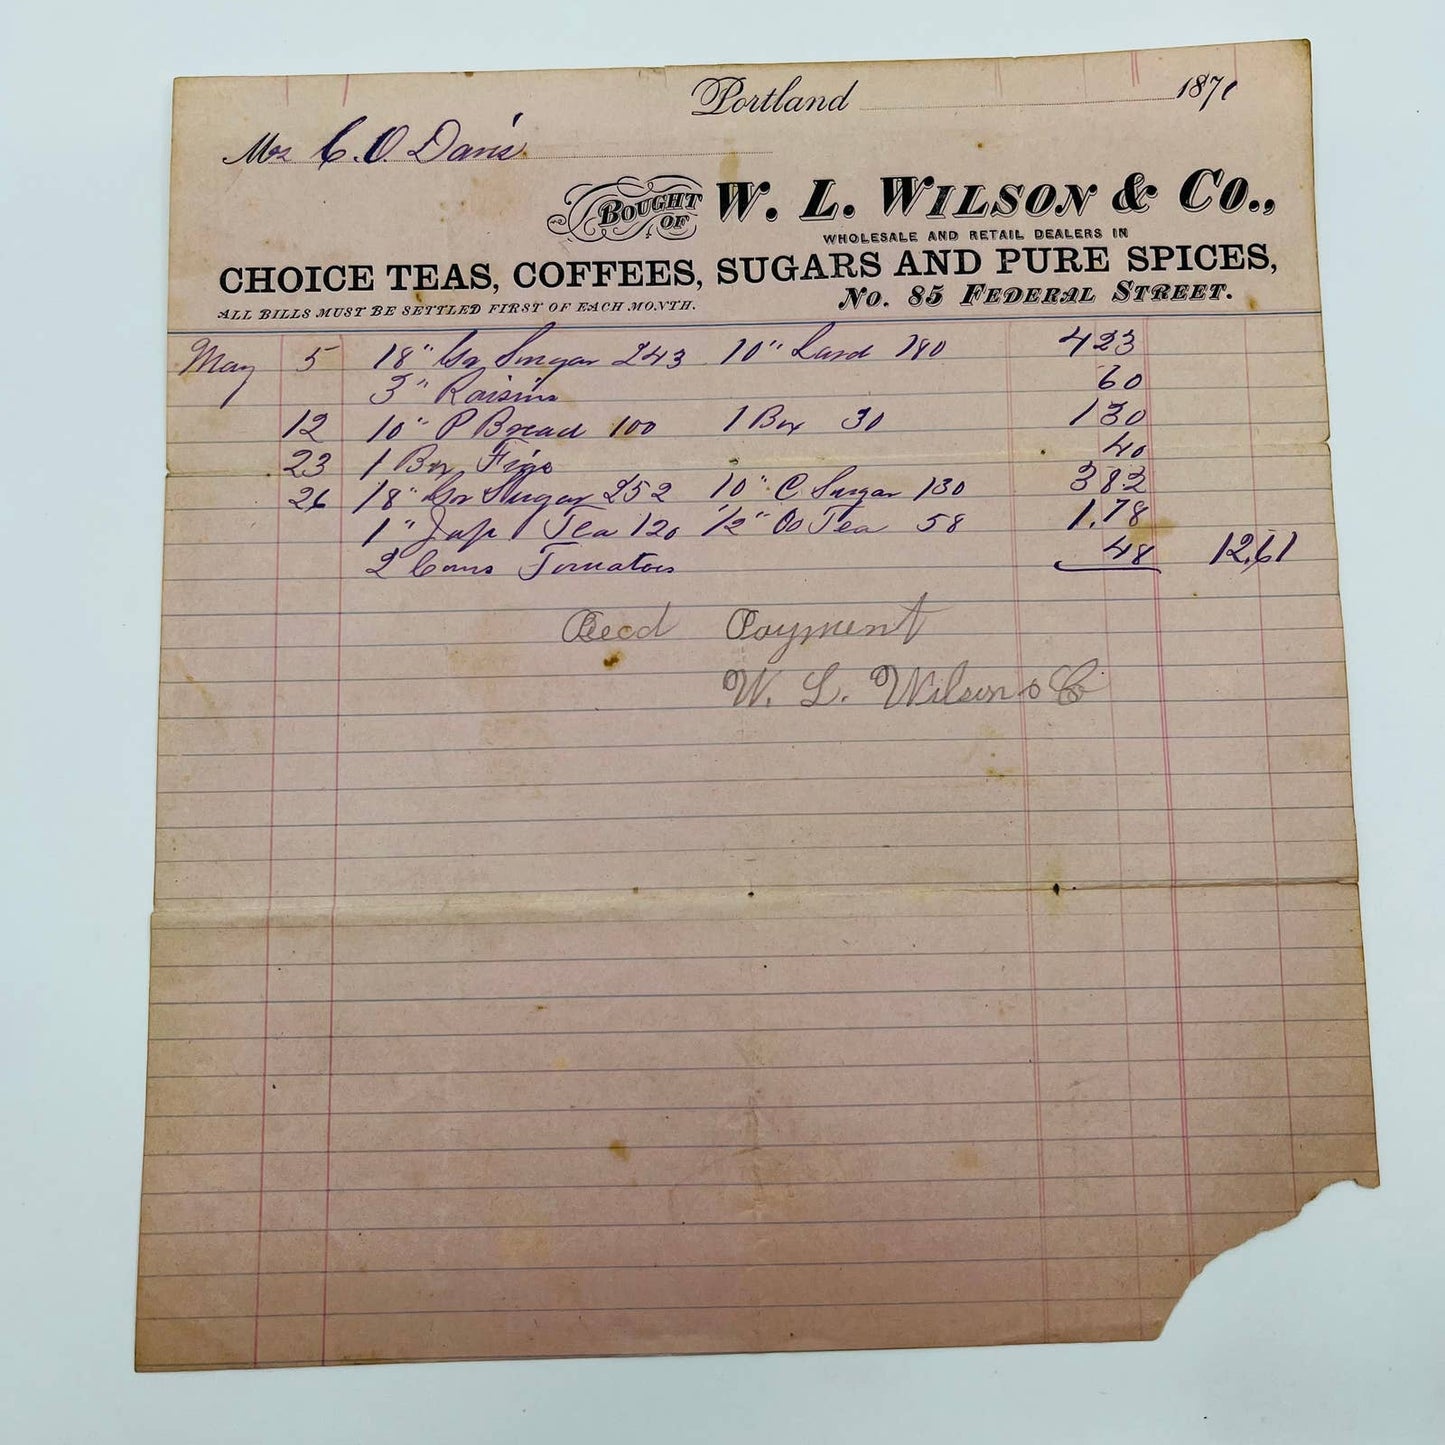 Portland 1871
Mrs C. O. Davis
BOUGHT OF W. L. WILSON & CO.,
WHOLESALE AND RETAIL DEALERS IN
CHOICE TEAS, COFFEES, SUGARS AND PURE SPICES,
ALL BILLS MUST BE SETTLED FIRST OF EACH MONTH. NO. 85 FEDERAL STREET.
May 5 18" Gr Sugar 243 10" Lard 180 423
3" Raisins 60
12 10" P Bread 100 1 Box 30 130
23 1 Box Figs 40
26 18" Gr Sugar 252 10" C Sugar 130 382
1" Jap Tea 120 1/2" Oo Tea 58 1.78
2 Cans Tomatoes 48 12.61
Recd Payment
W. L. Wilson & Co